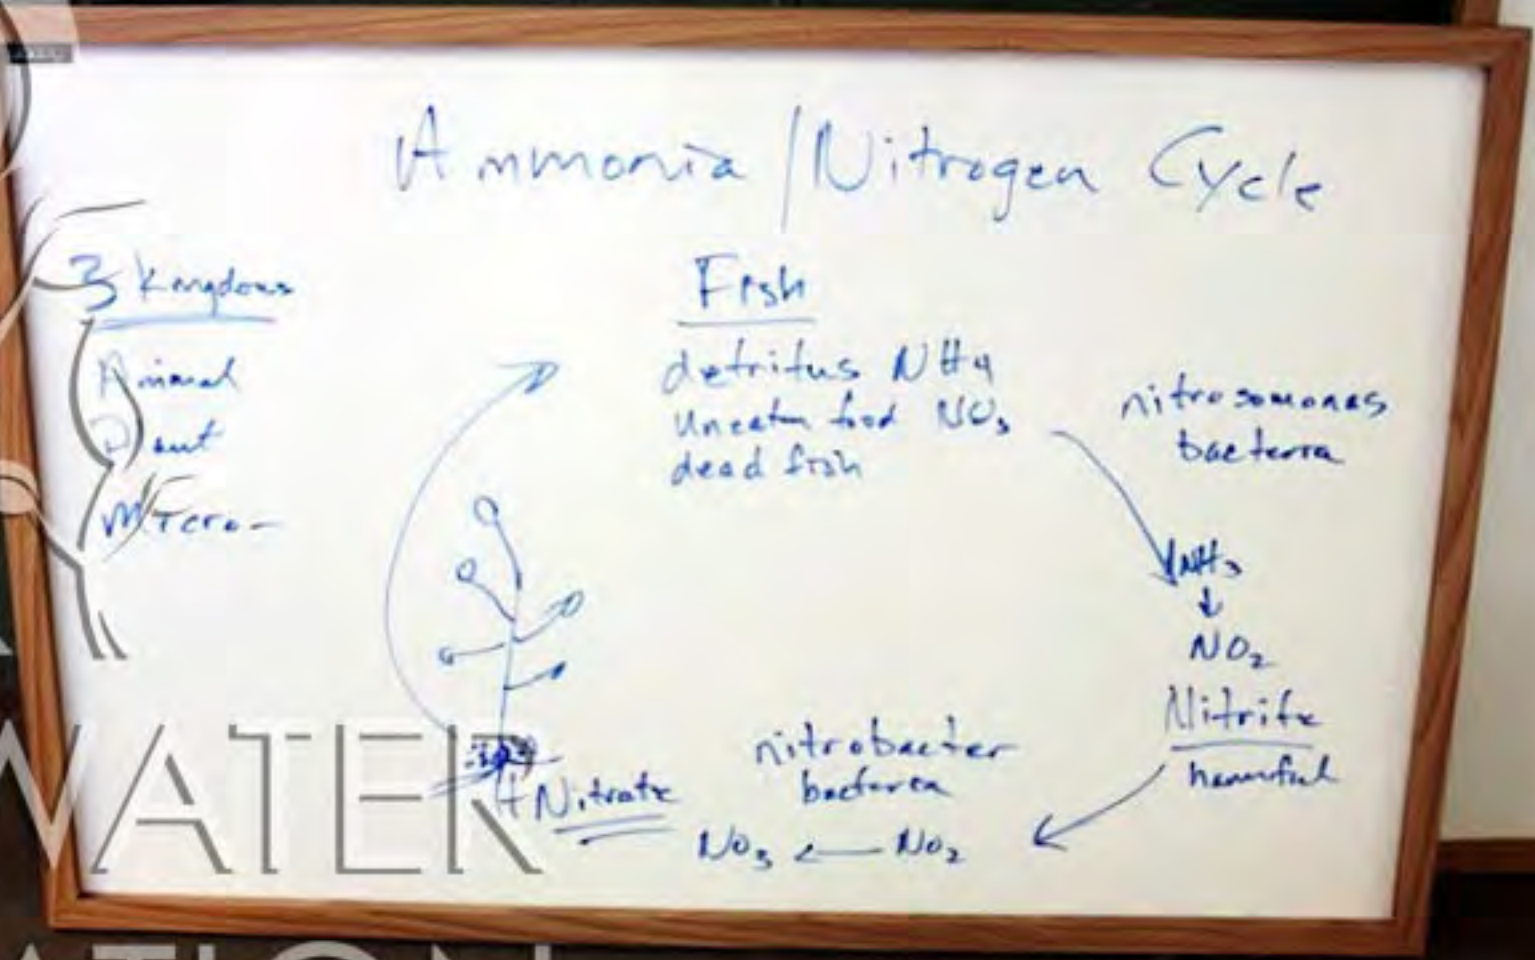 Ammonia / Nitrogen Cycle
3 Kingdoms
Animal
Plant
Micro-
Fish
detritus NH4
uneaten food NO3
dead fish
nitrosomonas
bacteria
NH3
↓
NO2
Nitrite
harmful
nitrobacter
bacteria
NO3 ← NO2
Nitrate
WATER